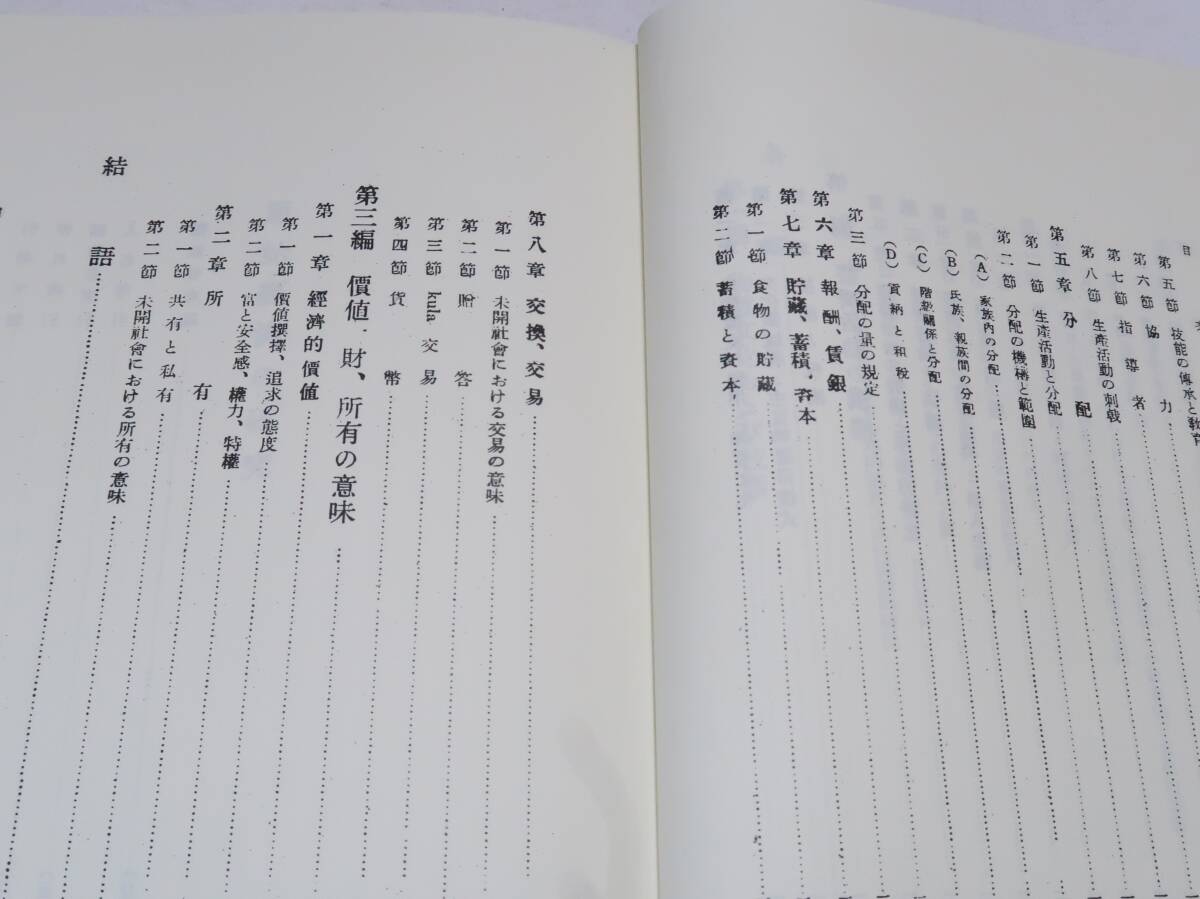 目
第五節 技能の傳承と教育
第六節 協力
第七節 指導者
第八節 生產活動の刺戟
第五章 分配
第一節 生產活動と分配
第二節 分配の機構と範圍
(A) 家族内の分配
(B) 氏族、親族間の分配
(C) 階級關係と分配
(D) 貢納と租稅
第三節 分配の量の規定
第六章 報酬、賃銀
第七章 貯藏、蓄積、資本
第一節 食物の貯藏
第二節 蓄積と資本
第八章 交換、交易
第一節 未開社會における交易の意味
第二節 贈答
第三節 kula 交易
第四節 貨幣
第三編 價値、財、所有の意味
第一章 經濟的價値
第一節 價値撰擇、追求の態度
第二節 富と安全感、權力、特權
第二章 所有
第一節 共有と私有
第二節 未開社會における所有の意味
結語